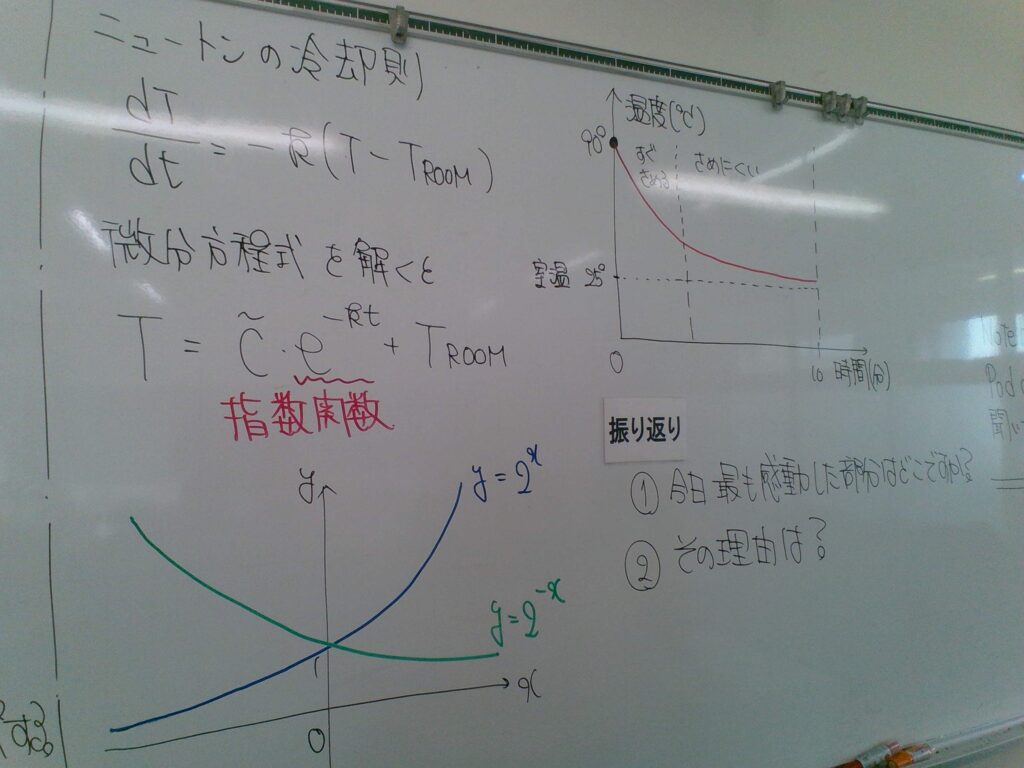 ニュートンの冷却則
dT/dt = -k(T - TROOM)
微分方程式を解くと
T = C̃・e^-kt + TROOM
指数関数
y
y = 2^x
y = 2^-x
1
x
0
する。
温度(℃)
90°
すぐ
さめる
さめにくい
室温 25°
0
10 時間(分)
振り返り
① 今日最も感動した部分はどこですか?
② その理由は?
Note
Pod
聞い